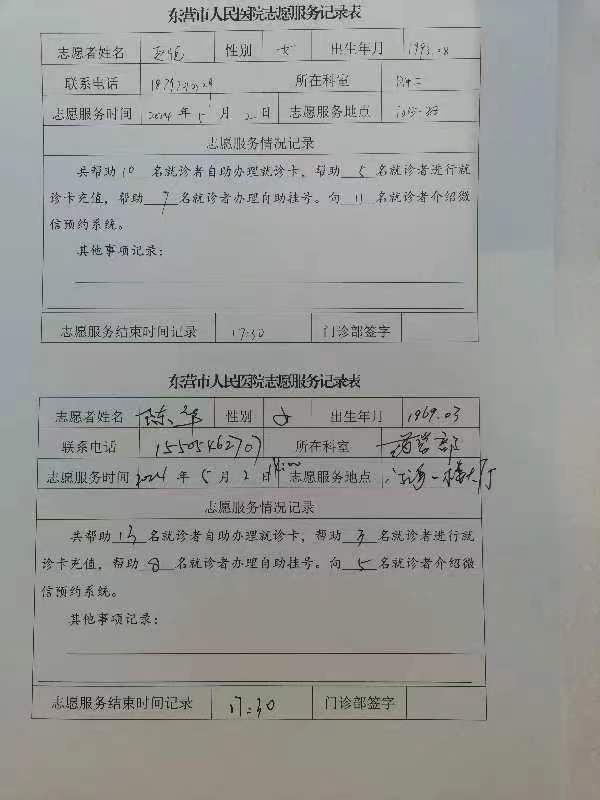 东营市人民医院志愿服务记录表
志愿者姓名 性别 女 出生年月 1993.08
联系电话 所在科室
志愿服务时间 2024 年 5 月 2 日 志愿服务地点
志愿服务情况记录
共帮助 10 名就诊者自助办理就诊卡，帮助 5 名就诊者进行就
诊卡充值，帮助 7 名就诊者办理自助挂号。向 11 名就诊者介绍微
信预约系统。
其他事项记录：
志愿服务结束时间记录 17:30 门诊部签字
东营市人民医院志愿服务记录表
志愿者姓名 陈华 性别 女 出生年月 1969.03
联系电话 15505462707 所在科室 药学部
志愿服务时间 2024 年 5 月 2 日 志愿服务地点 一楼大厅
志愿服务情况记录
共帮助 13 名就诊者自助办理就诊卡，帮助 3 名就诊者进行就
诊卡充值，帮助 8 名就诊者办理自助挂号。向 5 名就诊者介绍微
信预约系统。
其他事项记录：
志愿服务结束时间记录 17:30 门诊部签字